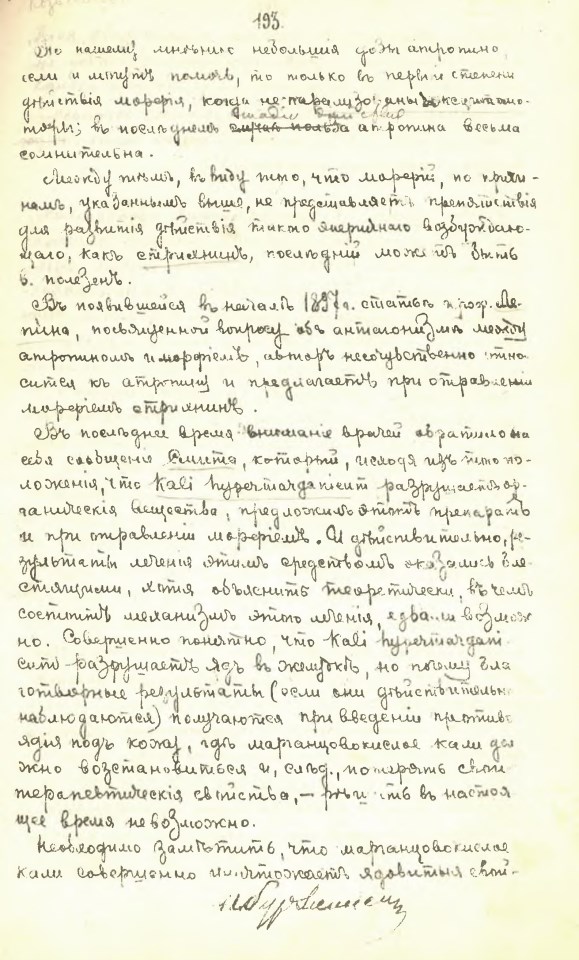 193.
По нашему мнѣнию небольшiя дозы атропина,
если и могутъ помочь, то только въ первый степени
дѣйствiя морфiя, когда не парализованы
въ послѣднемъ атропина весьма
сомнительна.
Между тѣмъ, въ виду того, что морфiй, по причи-
намъ, указаннымъ выше, не представляетъ препятствiя
для развитiя дѣйствiя такого энергичнаго возбуждаю-
щаго, какъ стрихнинъ, послѣднiй можетъ быть
б. полезенъ.
Въ появившейся въ началѣ 1897 г. статьѣ Ле-
пина, посвященной вопросу объ антагонизмѣ между
атропиномъ и морфiемъ, авторъ несочувственно отно
сится къ атропину и предлагаетъ при отравленiи
морфiемъ стрихнинъ.
Въ послѣднее время вниманiе врачей обратило на
себя сообщенiе Смита, который, исходя изъ того по-
ложенiя, что Kali hypermarganicum разрушаетъ ор-
ганическiя вещества, предложилъ этотъ препаратъ
и при отравленiи морфiемъ. И дѣйствительно, ре-
зультаты леченiя этимъ средствомъ оказались бле-
стящими, хотя объяснить теоретически, въ чемъ
состоитъ механизмъ этого леченiя, едва ли возмож
но. Совершенно понятно, что Kali hypermargani
cum разрушаетъ ядъ въ желудкѣ, но почему бла
готворные результаты (если они дѣйствительно
наблюдаются) получаются при введенiи противо
ядiя подъ кожу, гдѣ марганцовокислое кали дол
жно возстановиться и, слѣд., потерять свои
терапевтическiя свойства, — рѣшить въ настоя
щее время невозможно.
Необходимо замѣтить, что марганцовокислое
кали совершенно уничтожаетъ ядовитыя свой-